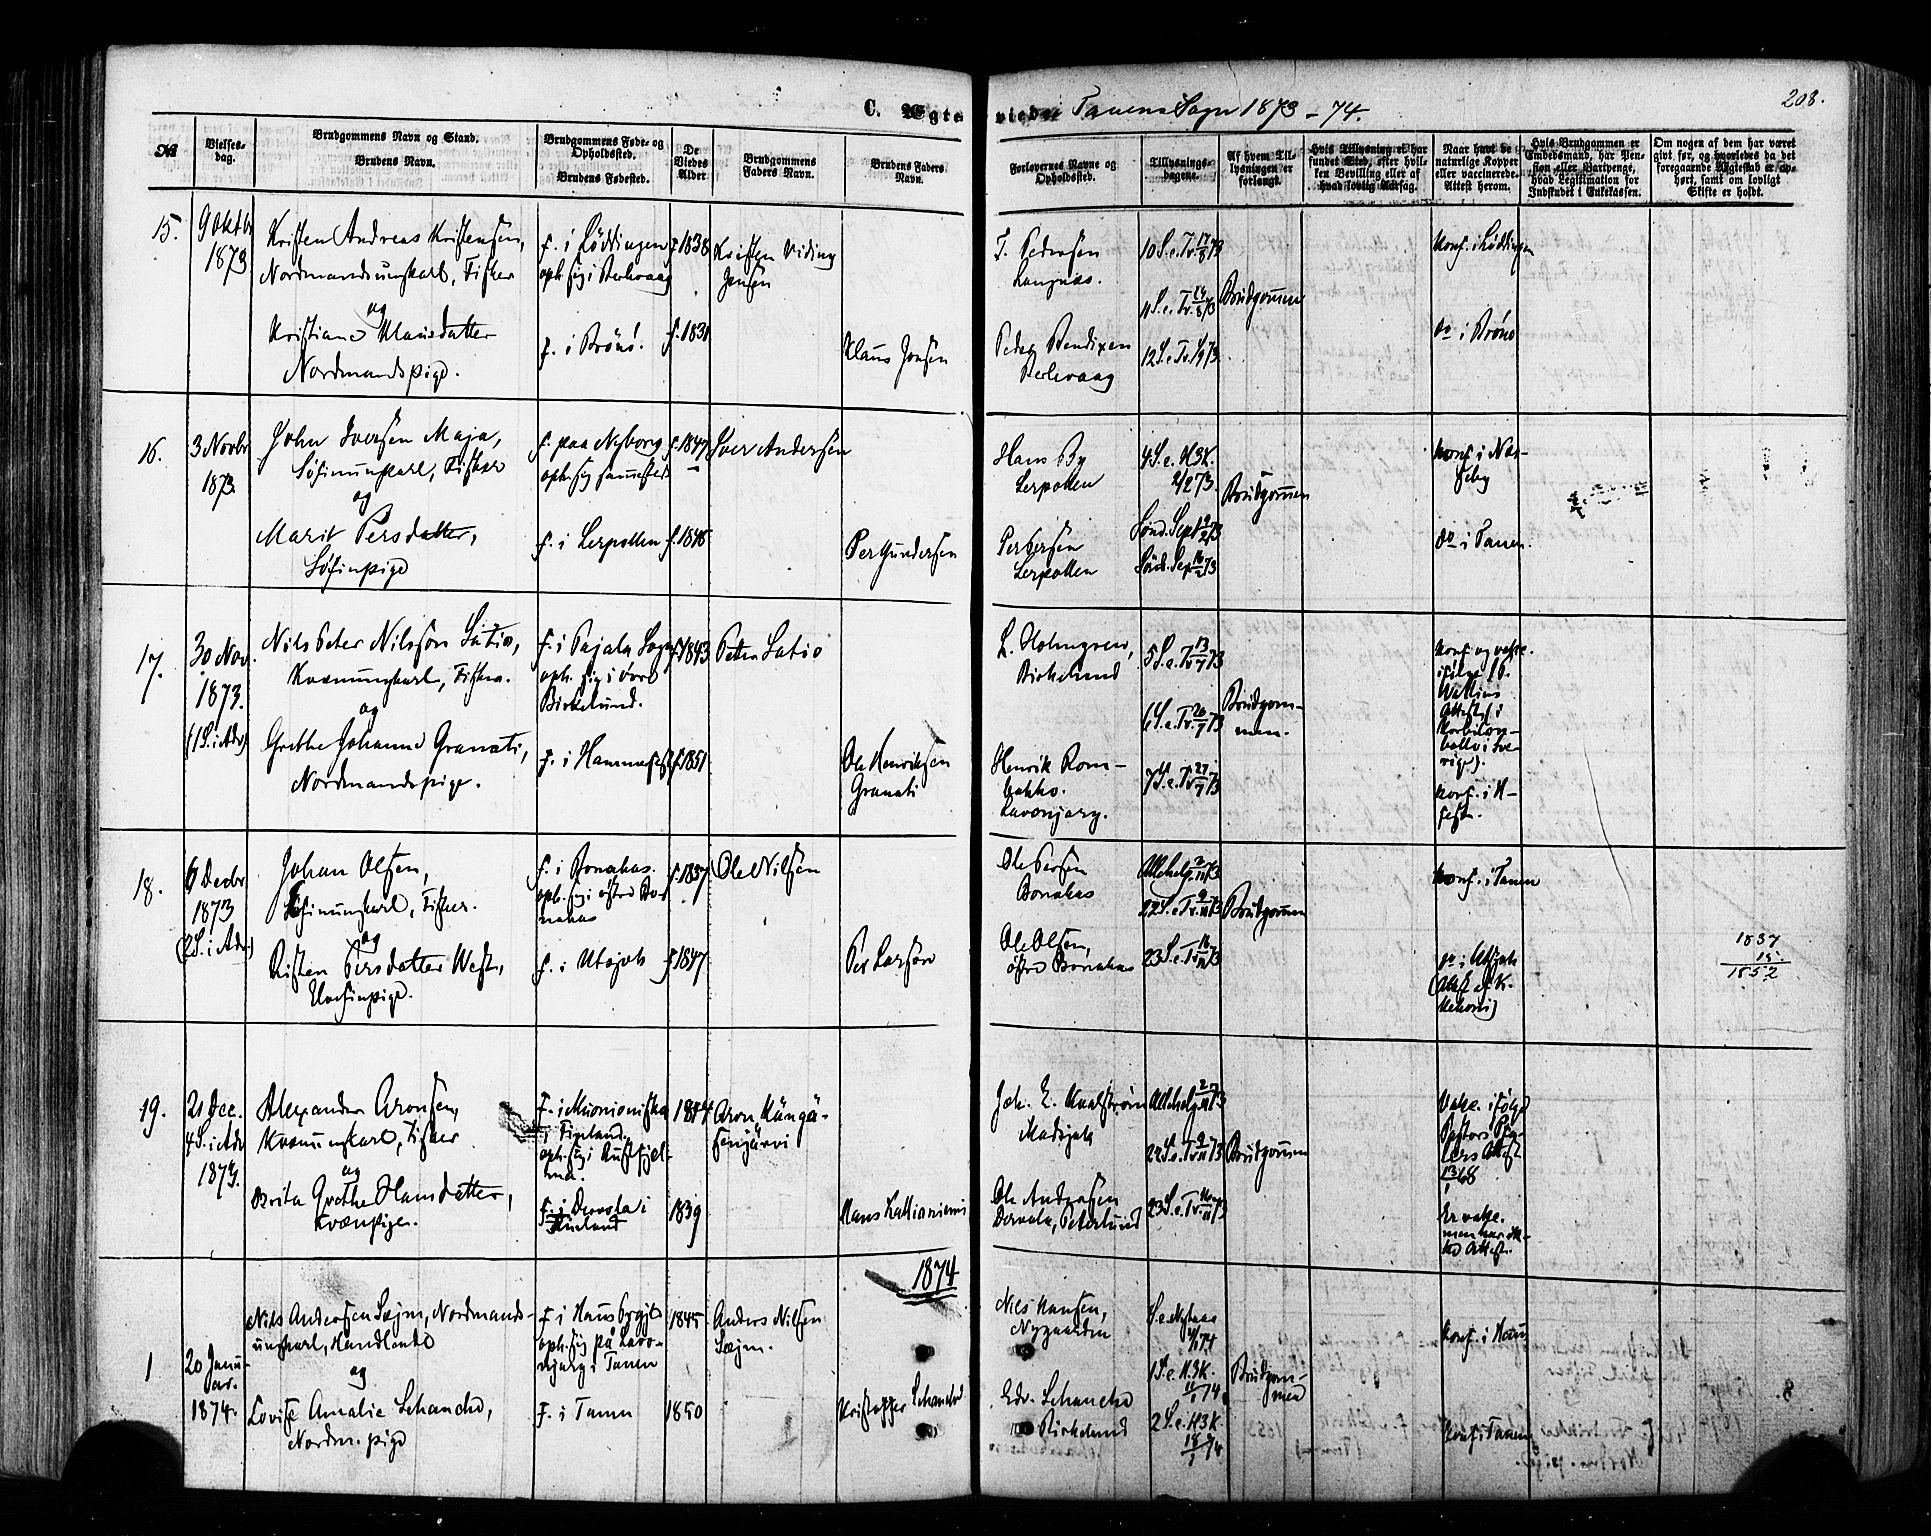 C. Ægte viede Tanens Sogn 1873 - 74.
208.
No
Vielses-
dag.
Brudgommens Navn og Stand.
Brudens Navn.
Brudgommens Føde- og
Opholdssted.
Brudens Fødested.
De
Viedes
Alder
Brudgommens
Faders Navn.
Brudens Faders
Navn.
Forlovernes Navne og
Opholdssted.
Tillysnings-
dagene.
Af hvem Til-
lysningen er
forlangt.
Hvis Tillysning ei har
fundet Sted, efter hvil-
ken Bevilling eller af
hvad lovlig Aarsag.
Naar havt de
naturlige Kopper
eller vaccinerede.
Attest herom.
Hvis Brudgommen er
Embedsmand, har Pen-
sion eller Vartpenge,
hvad Legitimation for
Indskudet i Enkekassen.
Om nogen af dem har været
givt før, og hvorledes da det
foregaaende Ægteskab er op-
hørt, samt om lovligt
Skifte er holdt.
15.
9 Oktbr
1873
Kristen Andreas Kristensen,
Nordmandsungkarl, Fisker
og
Kristiane Klausdatter
Nordmandspige.
f. i Löddingen
oph. sig i Perlevaag
f. i Brönö.
f. 1838
f. 1831
Kristen Viding
Jensen
Klaus Jensen
T. Pedersen
Langnæs.
Peder Bendixen
Perlevaag
10 S. e. Tr. 17/8 73
11 S. e. Tr. 24/8 73
12 S. e. Tr.
Brudgommen
Konf. i Löddingen
do i Brönö
16.
3 Novbr
1873.
John Iversen Maja,
Söfinungkarl, Fisker
og
Marit Persdatter,
Söfinpige
f. paa Nyborg
oph. sig sammesteds
f. i Lerpollen
f. 1847
f. 1848
Iver Andersen
Per Gundersen
Hans By
Lerpollen
Per Persen
Lerpollen
4 S. e. H3K.
2/2 73.
Brudgommen
Konf. i Næs-
seby
do i Tanen.
17.
30 Nov.
1873.
(1 S. i Adv.)
Nils Peter Nilsson Satio,
Kvænungkarl, Fisker.
og
Grethe Johanne Granati,
Nordmandspige.
f. i Pajala Sogn
oph. sig i övre
Birkelund.
f. i Hammerfest
f. 1843
f. 1851
Peter Satio
Ole Henriksen
Granati
L. Holmgren,
Birkelund
Henrik Rom-
bakko.
Lavonjarg.
5 S. e. Tr. 13/7 73
6 S. e. Tr. 20/7 73
7 S. e. Tr. 27/7 73
Brudgom-
men.
Konf. og vakc.
ifölge P.
Wallius
Attest i
Korbilom-
bolo i Sve-
rige).
Konf. i H-
fest.
18.
6 Decbr
1873
(2 S. i Adv.)
Johan Olsen,
Söfinungkarl, Fisker.
og
Risten Persdatter West,
Elvefinpige.
f. i Bonakas.
oph. sig i östre Bo-
nakas
f. i Utsjok
f. 1837
f. 1847
Ole Nilsen
Per Larsen
Ole Persen
Bonakas
Ole Olsen,
östre Bonakas
Allehelg. 2/11 73
22 S. e. Tr. 9/11 73
23 S. e. Tr. 16/11 73
Brudgommen
Konf. i Tanen
do i Utsjok
1837
15.
1852
19.
21 Dec.
4 S. i Adv.
1873.
Alexander Aronsen,
Kvænungkarl, Fisker
og
Brita Grethe Hansdatter,
Kvænpige.
f. i Muonioniska
i Finland,
oph. sig i Rustfjel-
ma.
f. i Dervola i
Finland
1839
Aron Kängä-
senjärvi
Hans Kallioniemi
Joh. E. Kvalström
Madsjok
Ole Andersen
Dervola, Peterlund
Allehelg. 2/11 73
22 S. e. Tr. 9/11 73
23 S. e. Tr. 16/11 73
Brudgommen
Vakc. ifölge
Pastors
Attest
13/1 68
Er vakc.
men har ik-
ke Attest.
1874
1
20 Janu-
ar.
1874.
Nils Andersen Sejm, Nordmands-
ungkarl, Handlende
og
Lovise Amalie Schanche,
Nordm. pige
f. i Haus Prgjld
oph. sig på Lavo-
njarg i Tanen
f. i Tanen
1845
1850
Anders Nilsen
Sejm.
Kristoffer Schanche
Nils Hansen,
Nygaarden
Edv. Schanche
Birkelund
S. e. Nytaar
4/1 74
1 S. e. H3K.
11/1 74.
2 S. e. H3K.
18/1 74
Brudgom-
men
Konf. i Haus
Konf. i Tanen